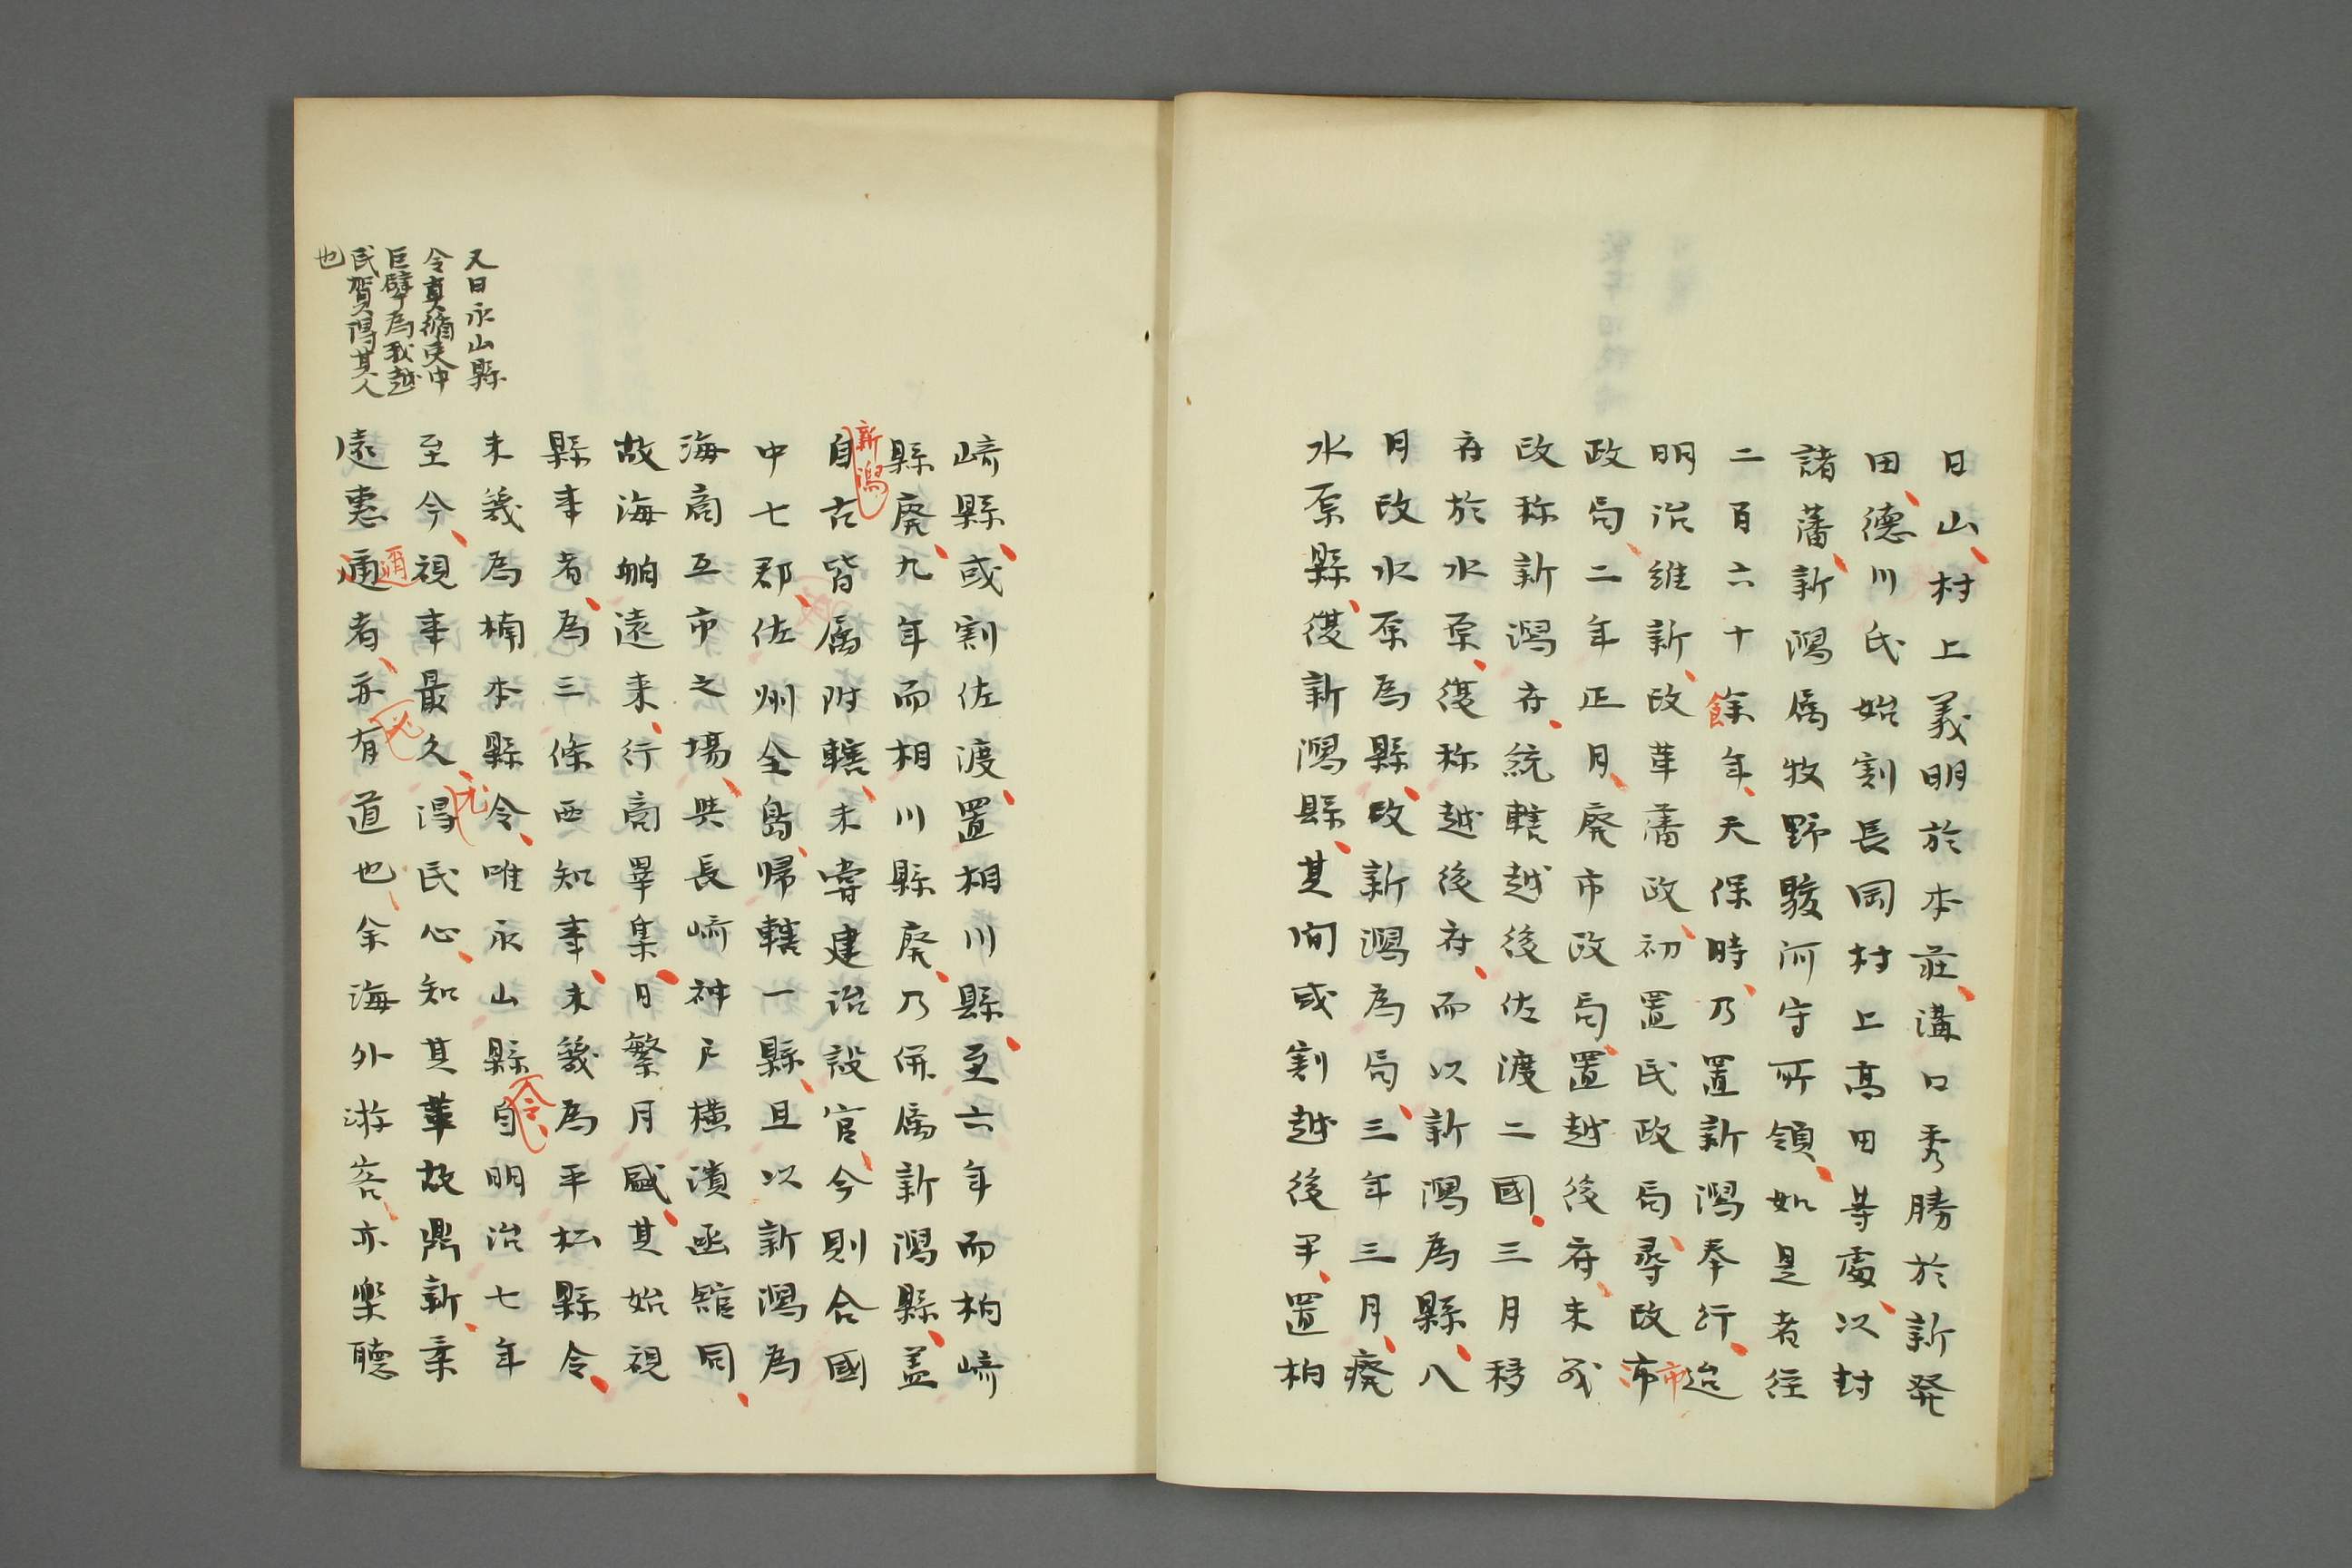 日山村上義明於本莊溝口秀勝於新発
田德川氏始割長岡村上高田等處以封
諸藩新潟属牧野駿河守所領如是者徑
二百六十餘年天保時乃置新潟奉行迨
明治維新改革藩政初置民政局尋改市
市
政局二年正月廢市政局置越後府未幾
改称新潟府統轄越後佐渡二國三月移
府於水原復称越後府而以新潟為縣八
月改水原為縣改新潟為局三年三月廢
水原縣復新潟縣其间或割越後半置柏
崎縣或割佐渡置相川縣至六年而柏崎
縣廢九年而相川縣廢乃併属新潟縣盖
新潟
自古皆属附轄未嘗建治設官今則合國
中七郡佐州全島帰轄一縣且以新潟為
海商互市之場與長崎神戶橫濱函館同
故海舶遠来行商畢集日繁月盛其始視
縣事者為三條西知事未幾為平松縣令
未幾為楠本縣令唯永山縣令自明治七年
至今視事最久尤得民心知其革故鼎新柔
遠惠邇者亦有道也余海外游客亦樂聽
邇
又曰永山縣
令真循吏中
巨擘為我越
民賀得其人
也